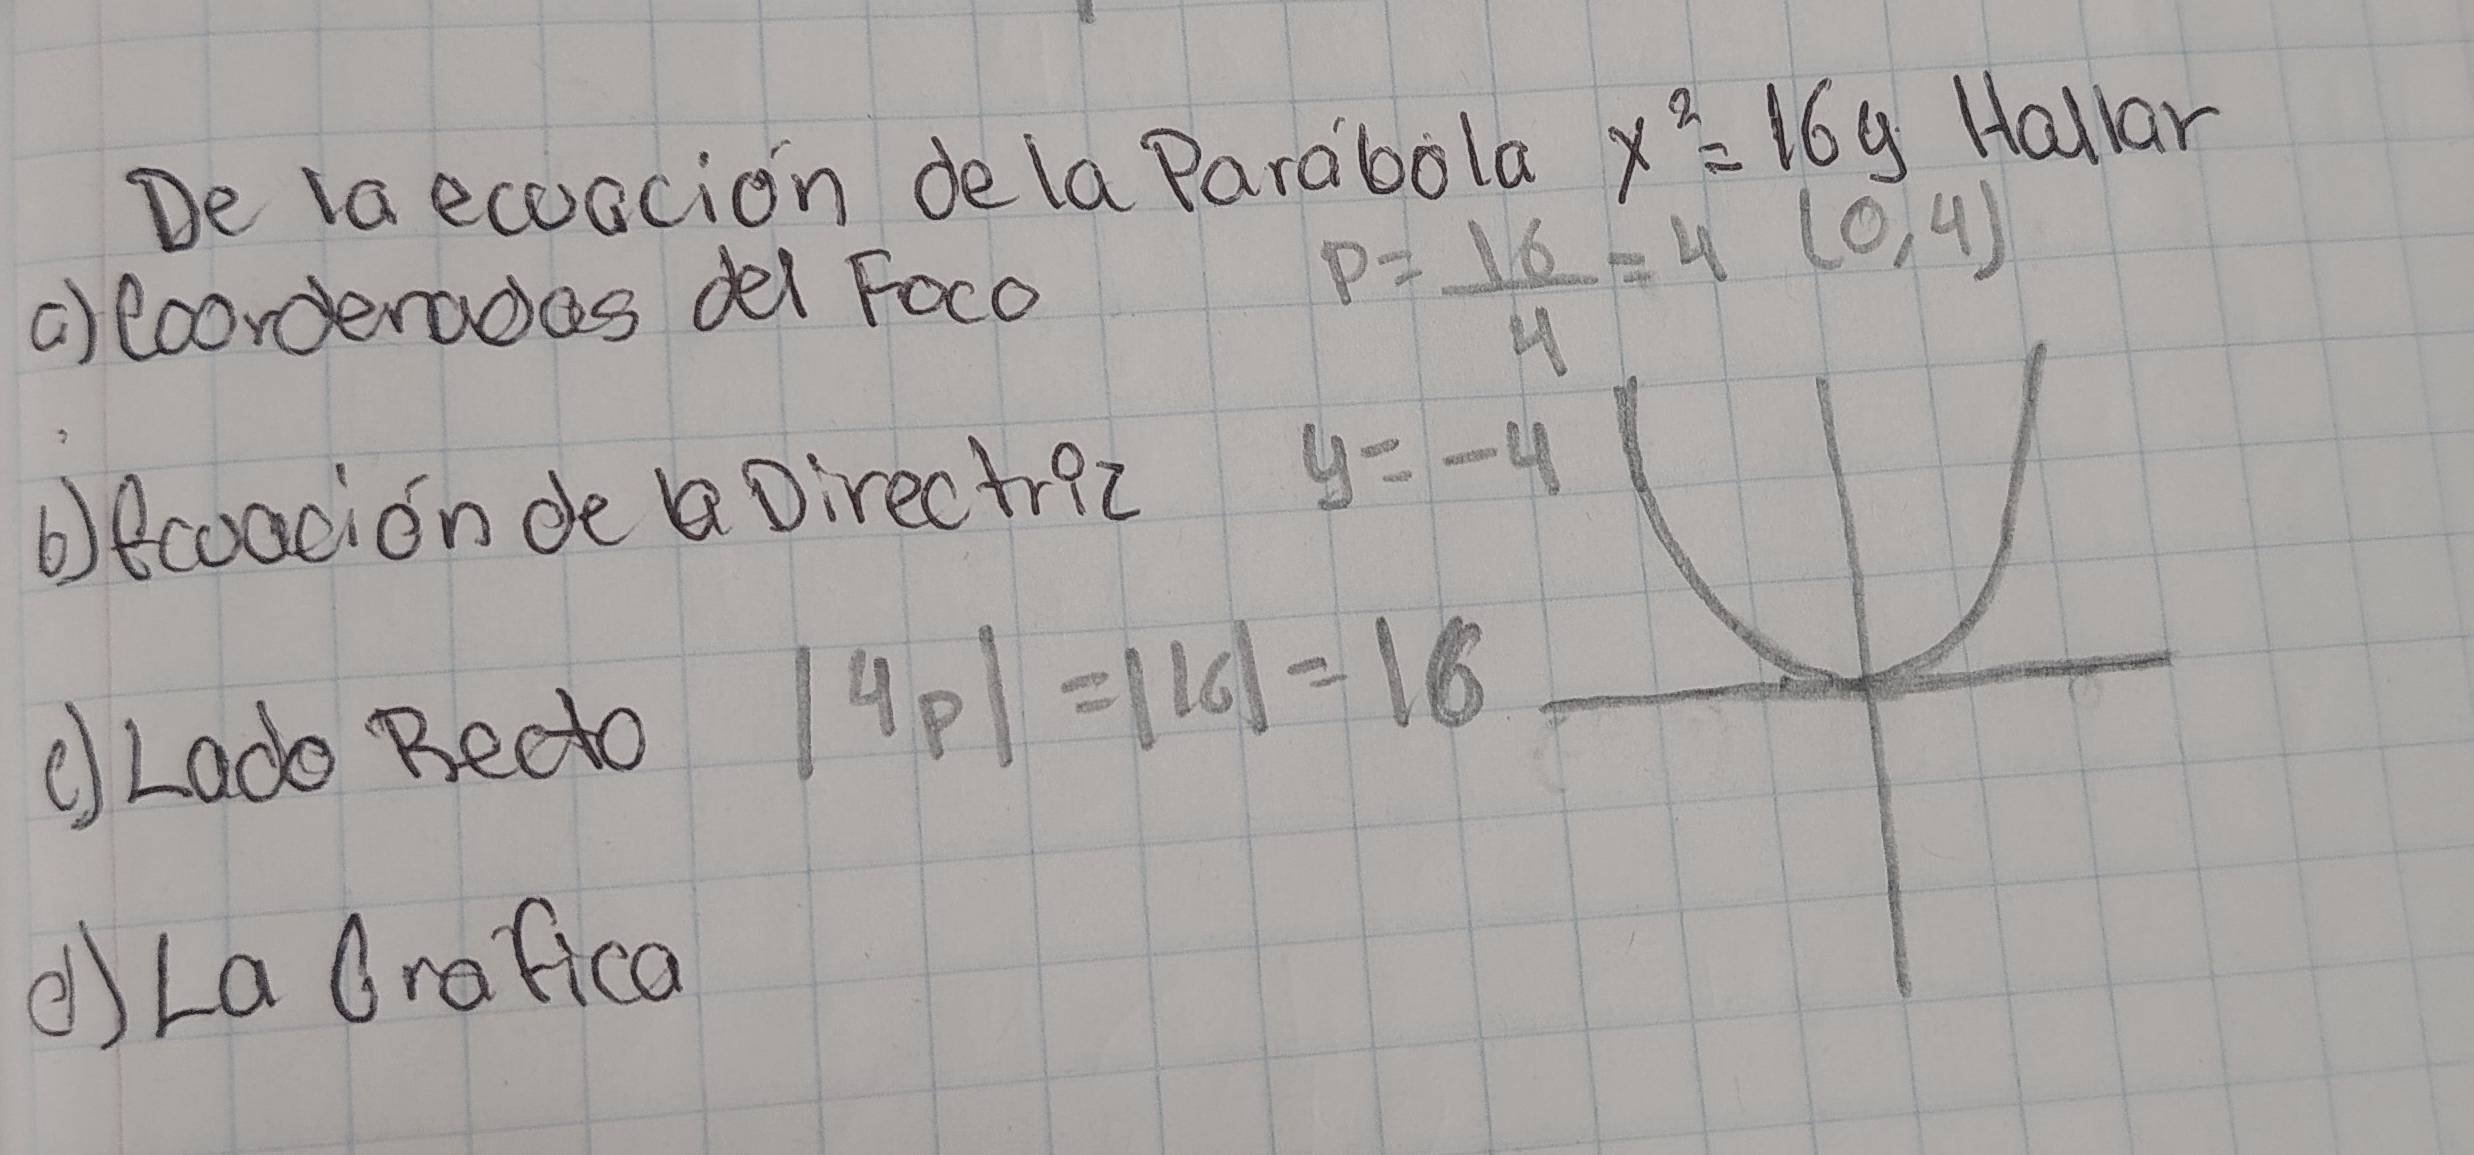 De la ecuación de la Parábola x² = 16y Hallar
a) Coordenadas del Foco P = 16/4 = 4 (0,4)
b) Ecuación de la Directriz y = -4
c) Lado Recto |4p| = |16| = 16
d) La Grafica